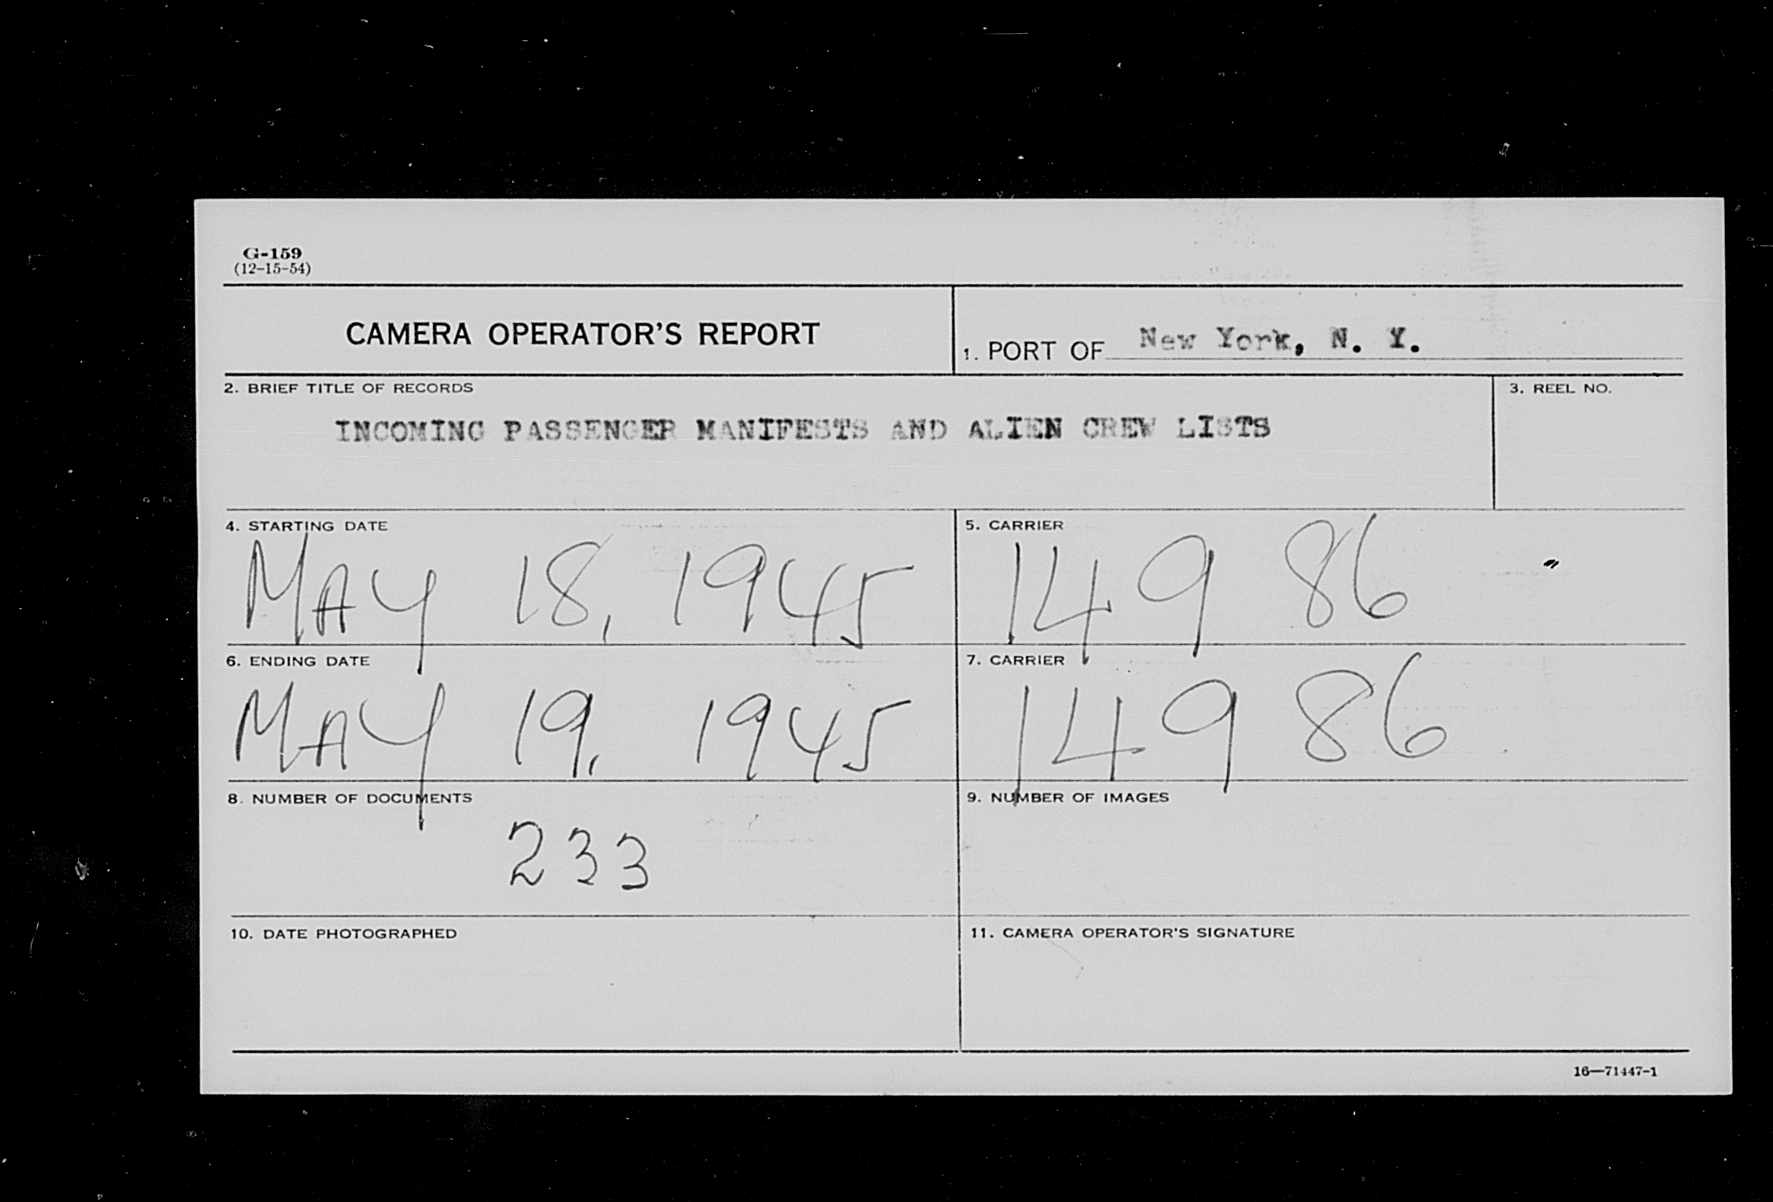 G-159
(12-15-54)
CAMERA OPERATOR'S REPORT
1. PORT OF New York, N. Y.
2. BRIEF TITLE OF RECORDS
3. REEL NO.
INCOMING PASSENGER MANIFESTS AND ALIEN CREW LISTS
4. STARTING DATE
5. CARRIER
MAY 18, 1945
149 86
6. ENDING DATE
7. CARRIER
MAY 19, 1945
149 86
8. NUMBER OF DOCUMENTS
9. NUMBER OF IMAGES
233
10. DATE PHOTOGRAPHED
11. CAMERA OPERATOR'S SIGNATURE
16—71447-1